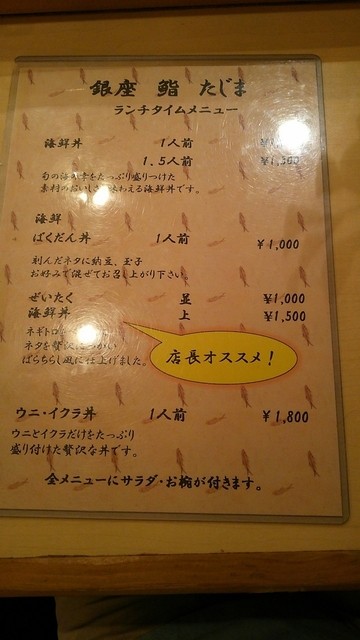 銀座 鮨 たじま
ランチタイムメニュー
海鮮丼 1人前
1.5人前 ¥1,500
旬の海の幸をたっぷり盛りつけた
素材のおいしさ味わえる海鮮丼です。
海鮮
ばくだん丼 1人前 ¥1,000
刻んだネタに納豆、玉子
お好みで混ぜてお召し上がり下さい。
ぜいたく 並 ¥1,000
海鮮丼 上 ¥1,500
ネギトロ
ネタを贅沢に
ばらちらし風に仕上げました。
店長オススメ!
ウニ・イクラ丼 1人前 ¥1,800
ウニとイクラだけをたっぷり
盛り付けた贅沢な丼です。
全メニューにサラダ・お椀が付きます。